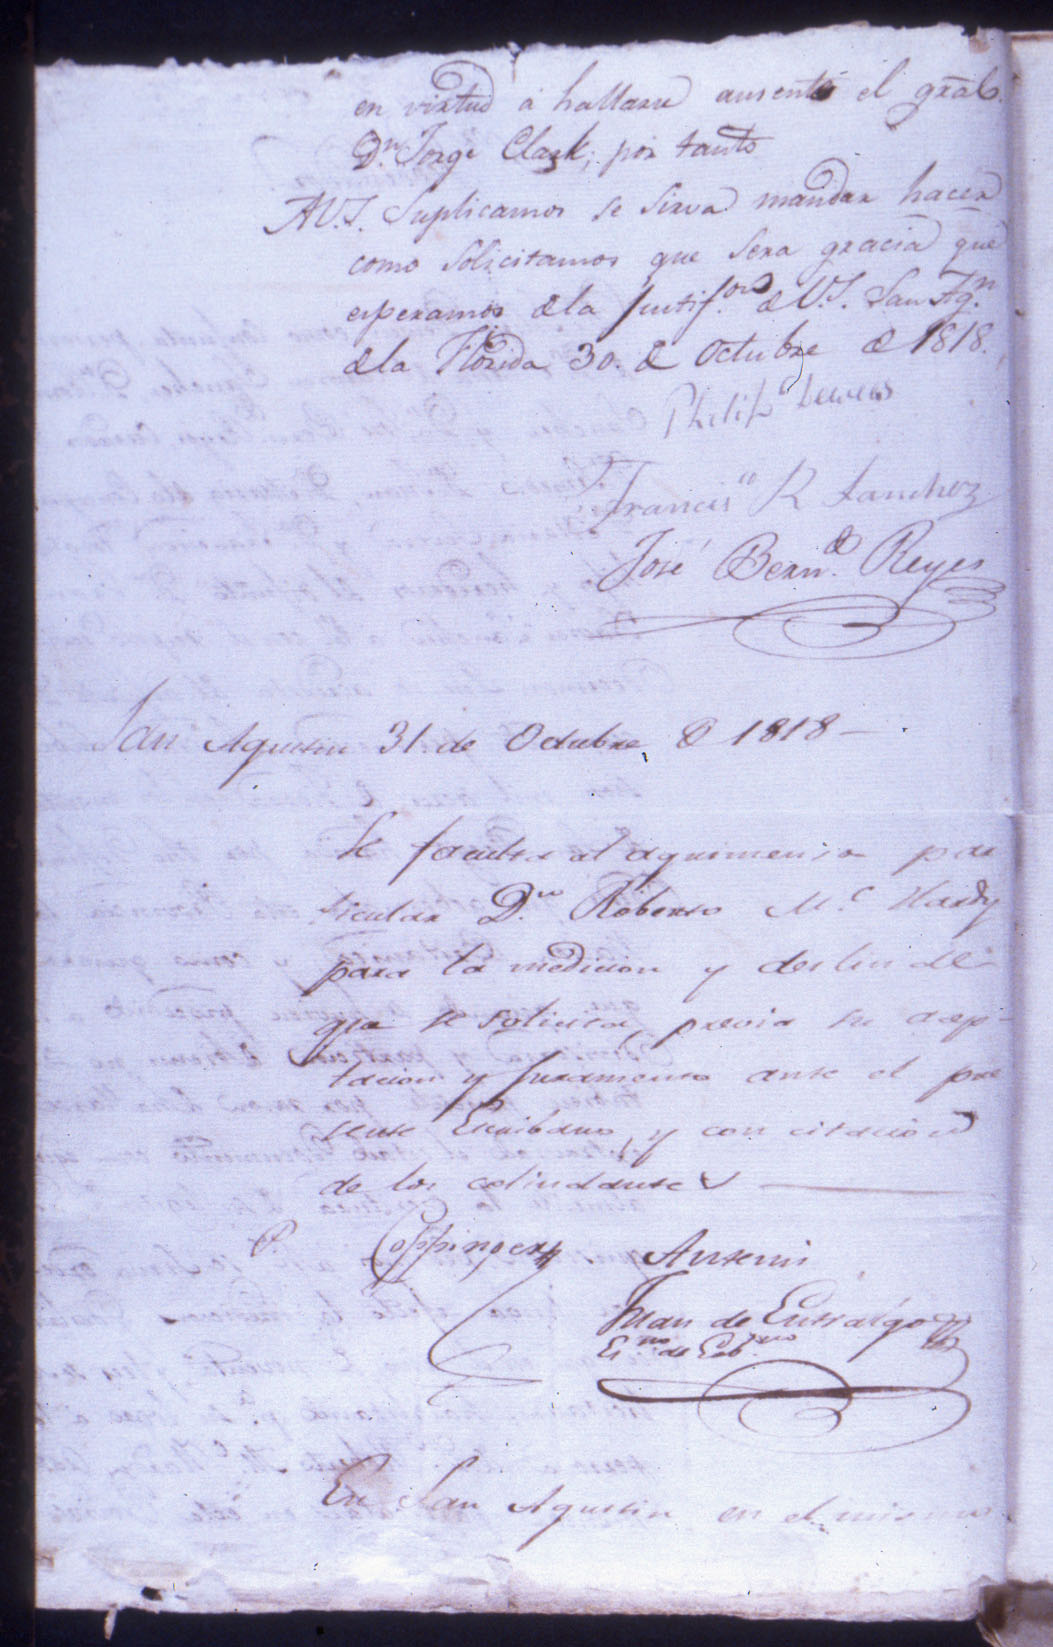 en virtud á hallarse ausente el gral.
Dn. Jorge Clark; por tanto
A V.S. Suplicamos se sirva mandar hacer
como solicitamos que sera gracia que
esperamos de la justifon. de V.S. San Agn.
de la Florida 30. de Octubre de 1818.
Philip Dewees
Francisco R Sanchez
José Bern.do Reyes
San Agustin 31 de Octubre de 1818 —
Se faculta al agrimensor par
ticular Dn. Roberto Mc. Hardy
para la medicion y deslinde
que se solicita, previa su acep-
tacion y juramento ante el pre
sente Escribano, y con citacion
de los colindantes
Coppinger
Antemi
Juan de Entralgo
Es.no de Gob.no
En San Agustin en el mismo